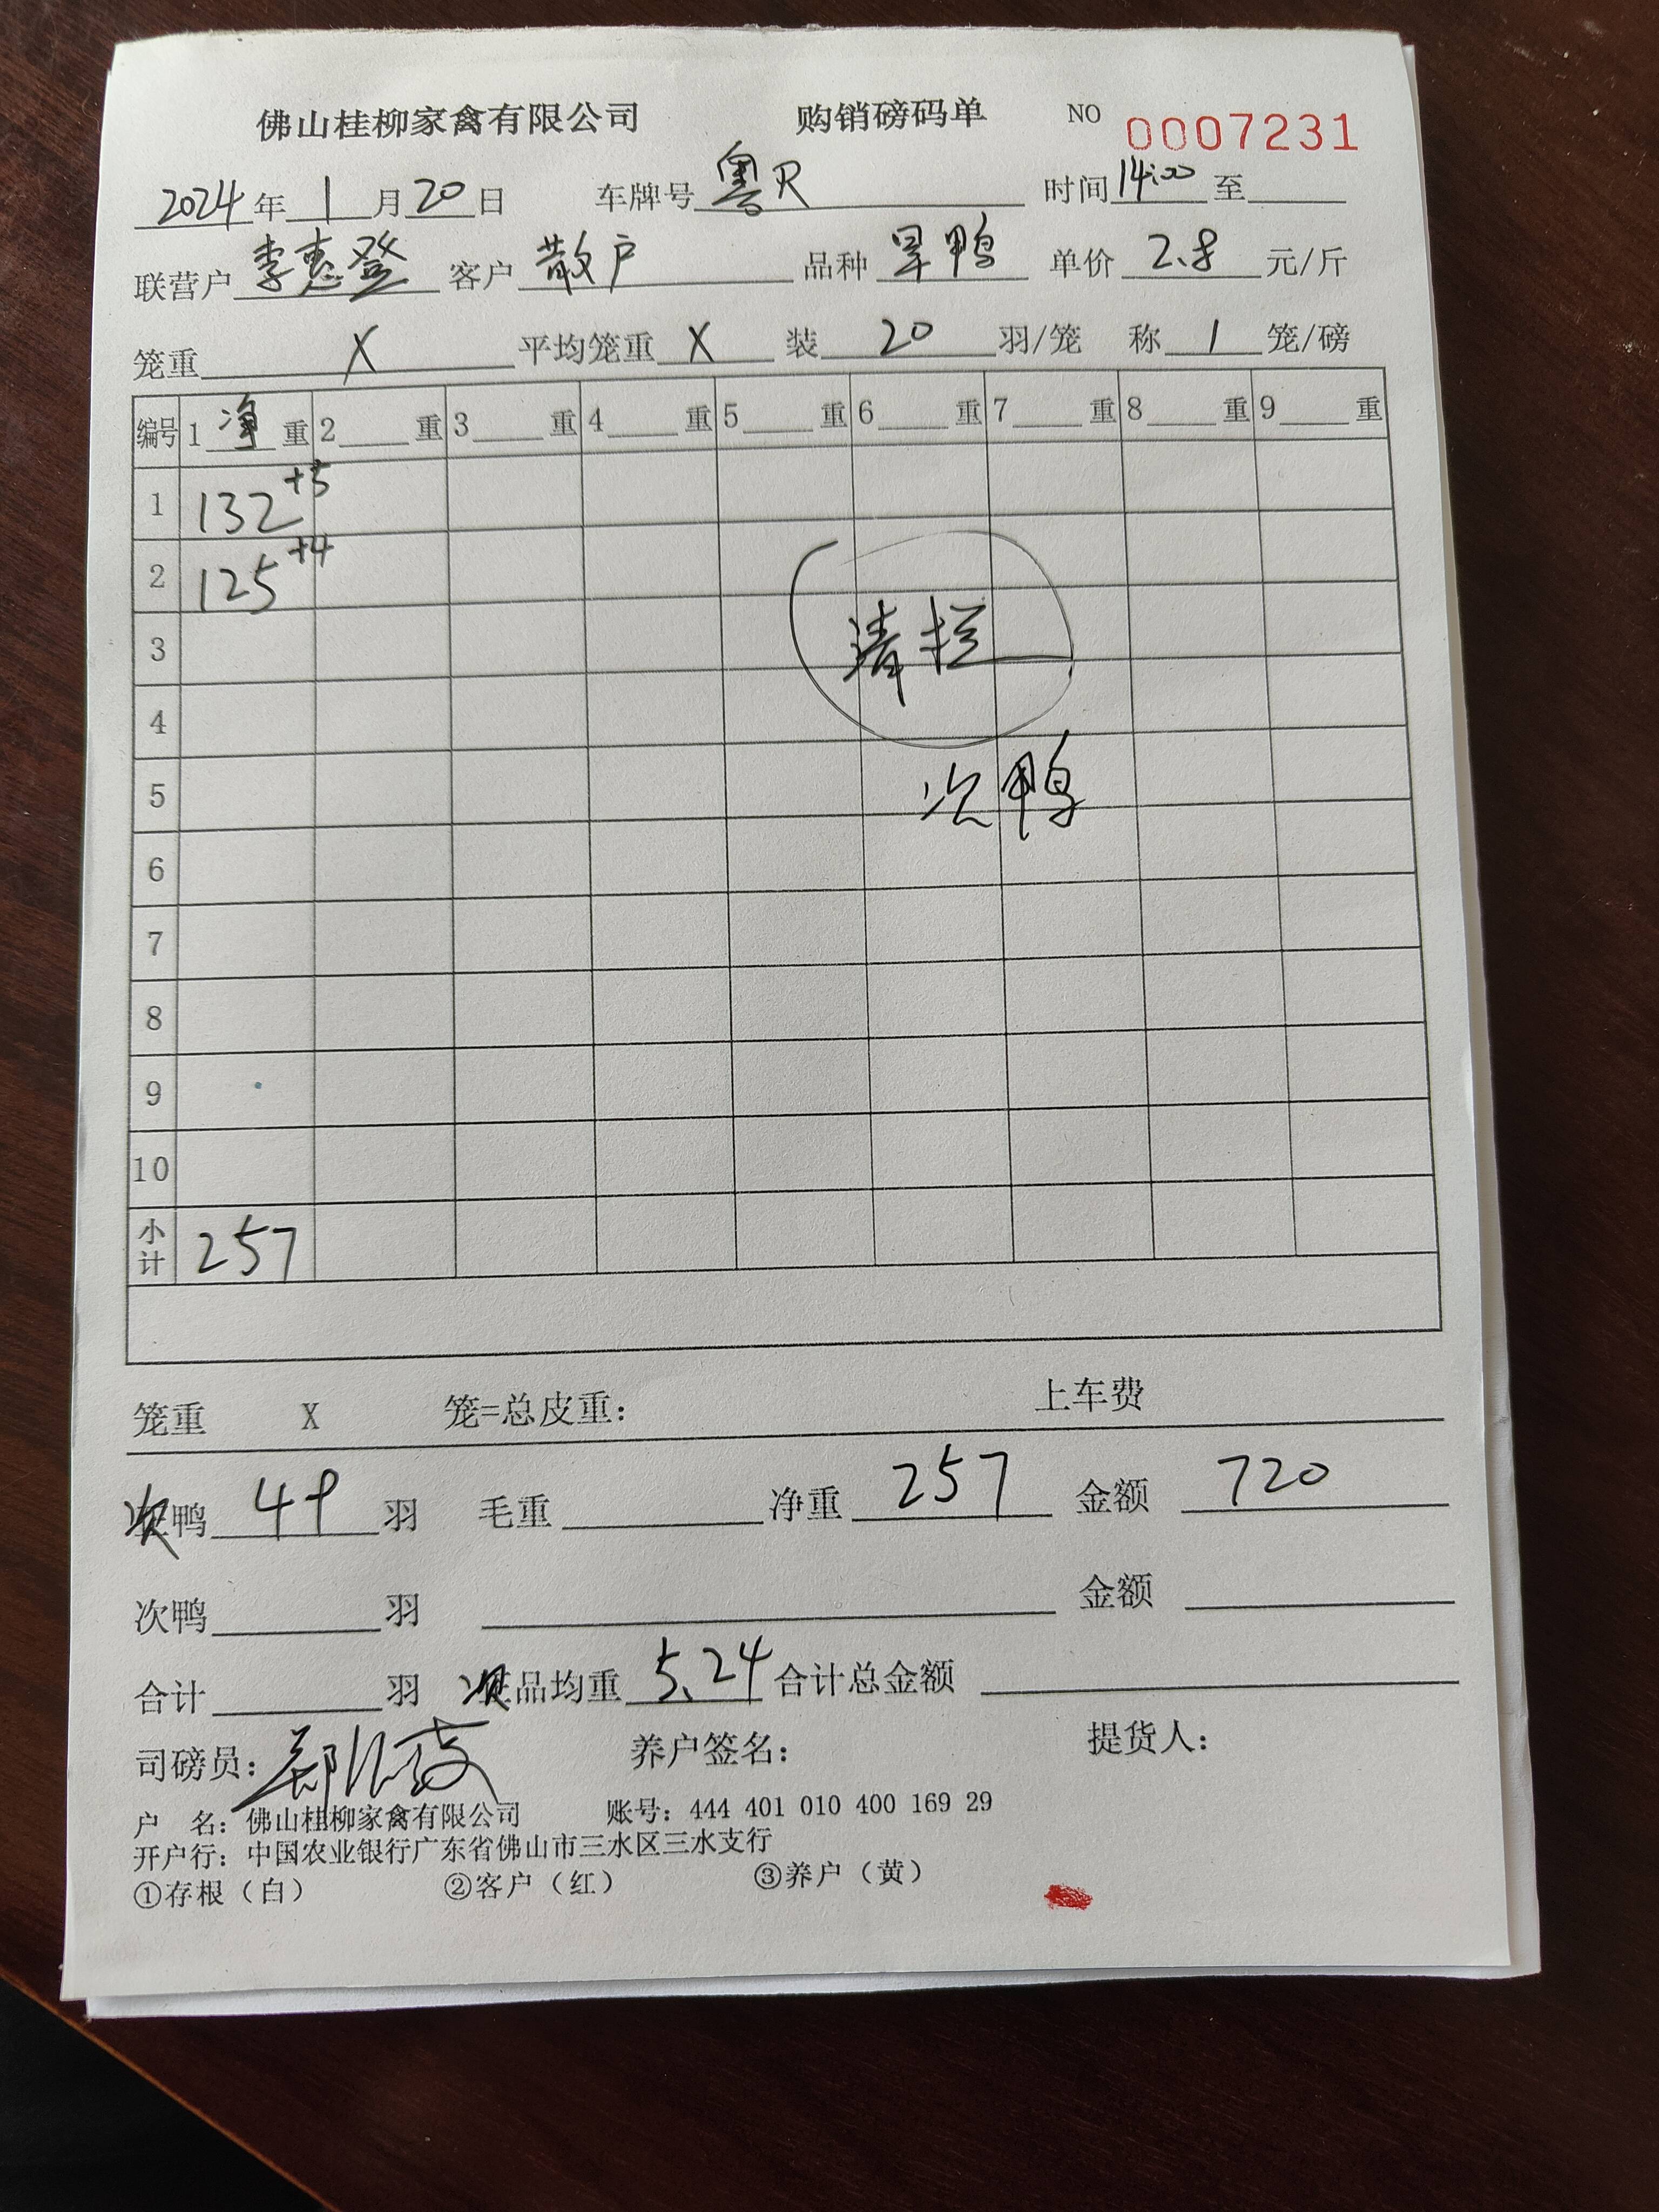 佛山桂柳家禽有限公司 购销磅码单 NO 0007231
2024年1月20日 车牌号 粤R 时间 14:00 至
联营户 李惠登 客户 散户 品种 旱鸭 单价 2.8 元/斤
笼重 X 平均笼重 X 装 20 羽/笼 称 1 笼/磅
编号 1 净 重 2 重 3 重 4 重 5 重 6 重 7 重 8 重 9 重
1 132+5
2 125+4
3 清栏
4
5 次鸭
6
7
8
9
10
小计 257
笼重 X 笼=总皮重: 上车费
次鸭 49 羽 毛重 净重 257 金额 720
次鸭 羽 金额
合计 羽 次品均重 5.24 合计总金额
司磅员: 养户签名: 提货人:
户 名: 佛山桂柳家禽有限公司 账号: 444 401 010 400 169 29
开户行: 中国农业银行广东省佛山市三水区三水支行
①存根（白） ②客户（红） ③养户（黄）